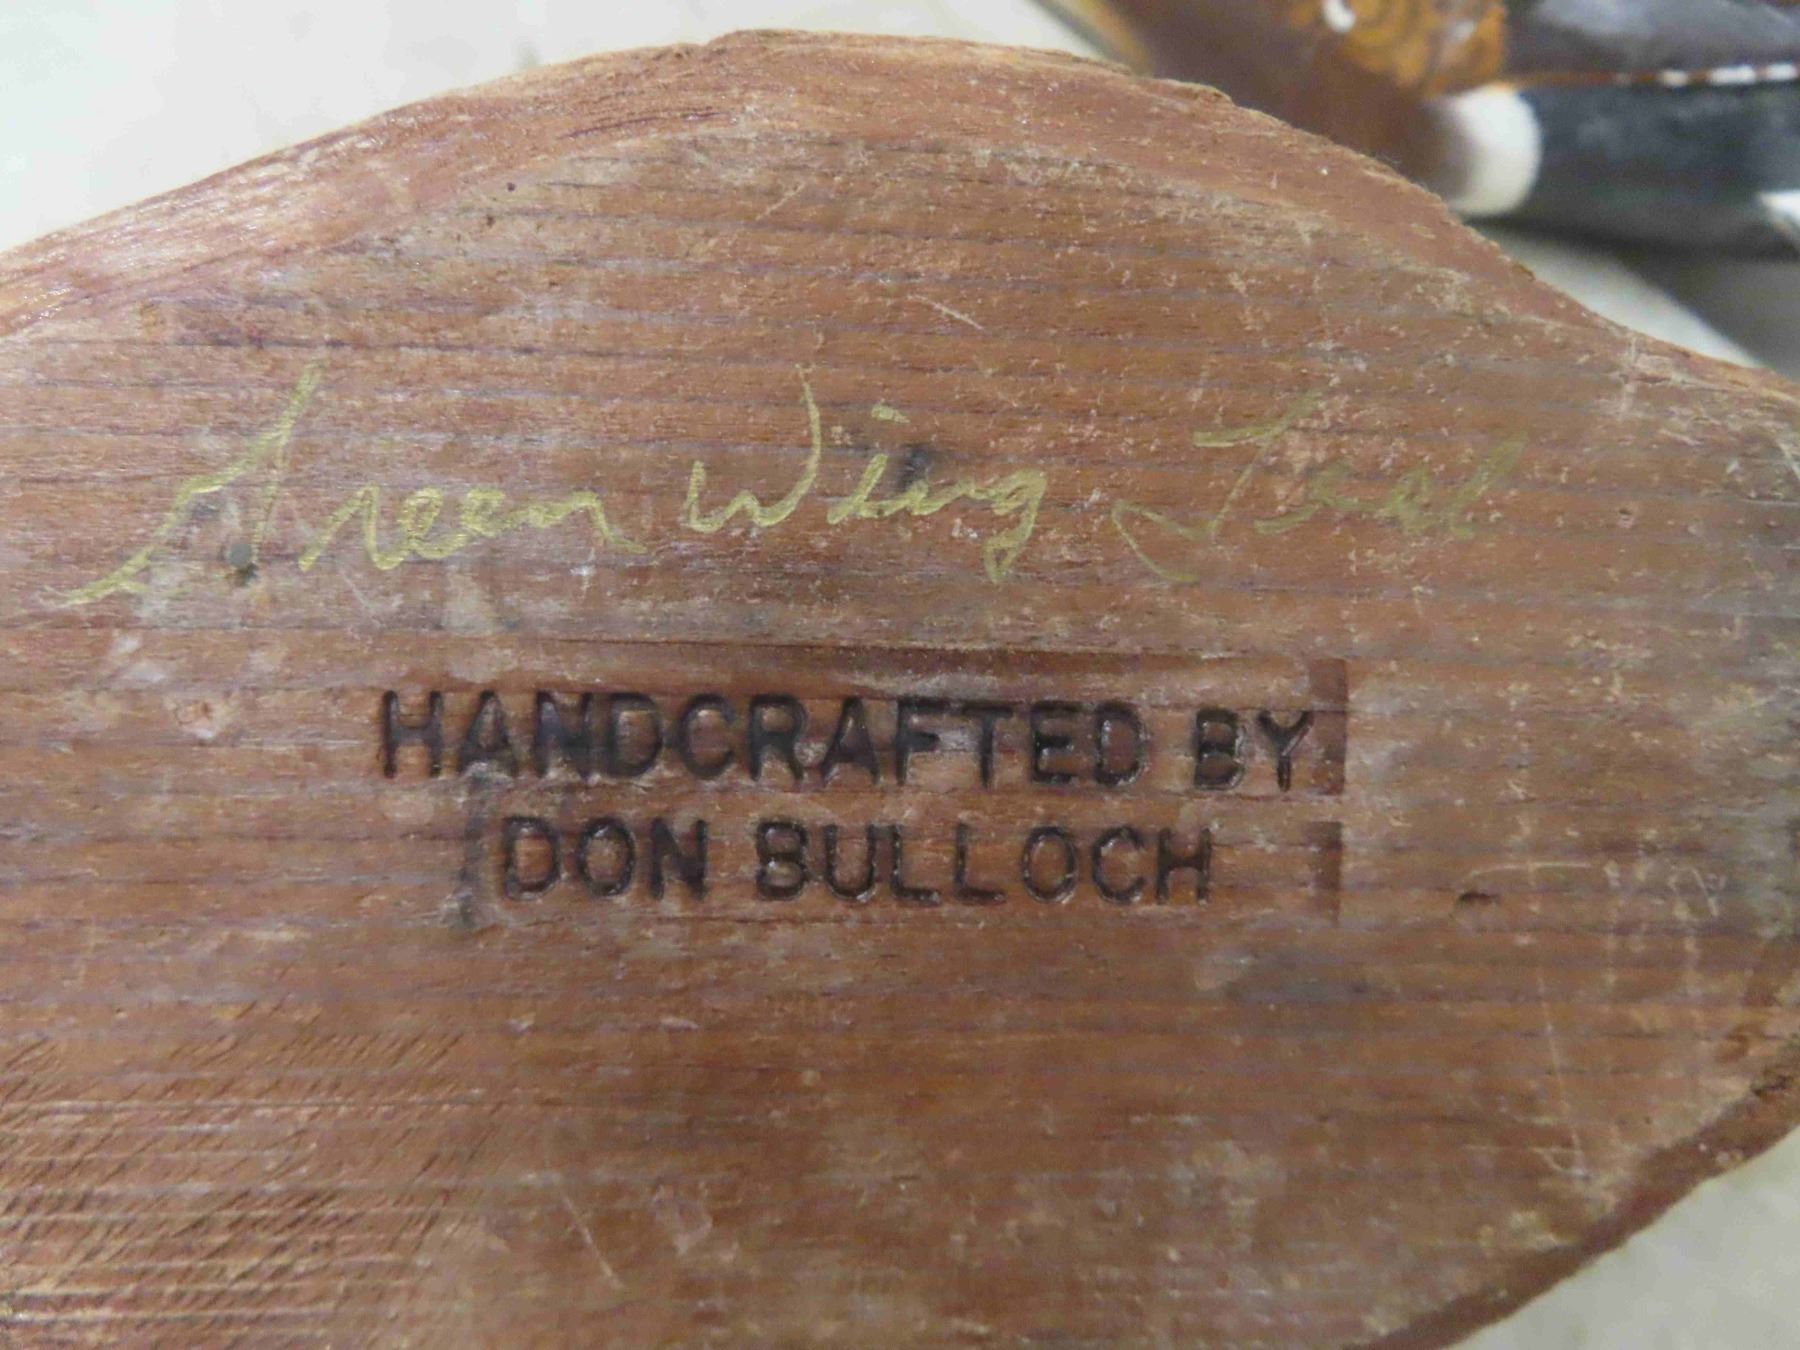 Green Wing Teal
HANDCRAFTED BY
DON BULLOCH